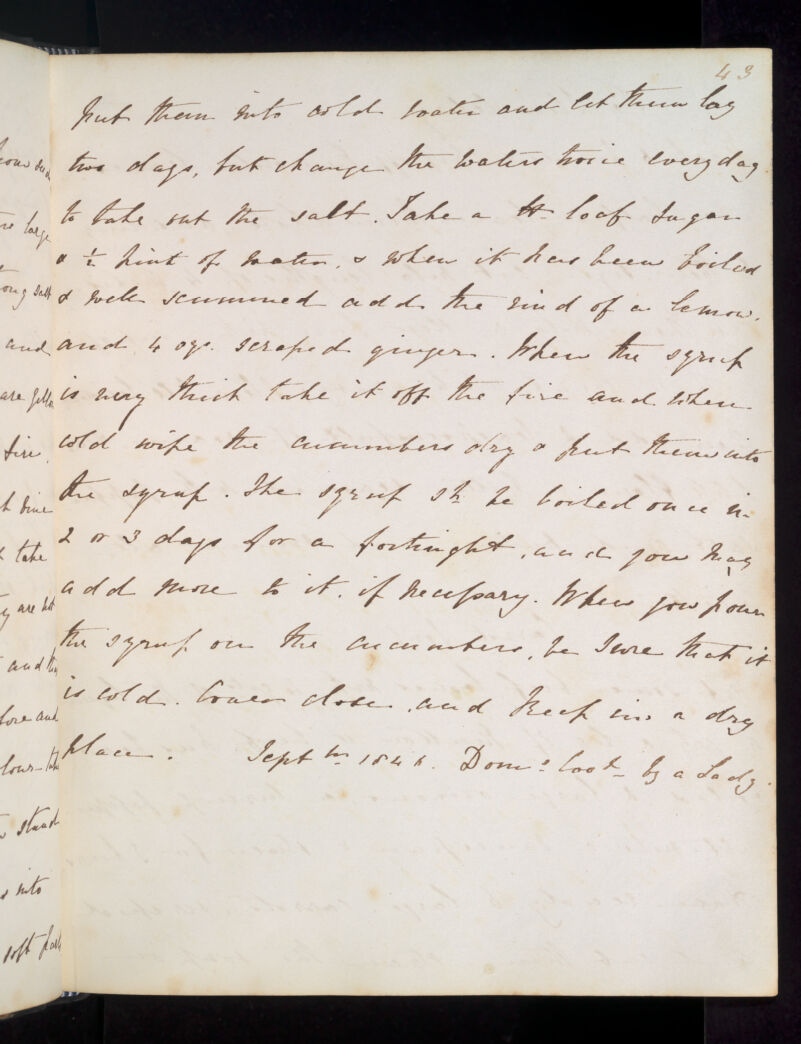 43
put them into cold water and let them lay
two days, but change the waters twice every day
to take out the salt. Take a lb loaf sugar
& ½ pint of water, & when it has been boiled
& well scummed add the rind of a lemon.
and 4 ozs. scraped ginger. When the syrup
is very thick take it off the fire and when
cold wipe the cucumbers dry & put them into
the syrup. The syrup shd. be boiled once in
2 or 3 days for a fortnight, and you may
add more to it, if necessary. When you pour
the syrup on the cucumbers, be sure that it
is cold. Cover close, and keep in a dry
place. Sept. Domc. Cooky. by a Lady.
large
and
fire.
take
and
stand
into
soft